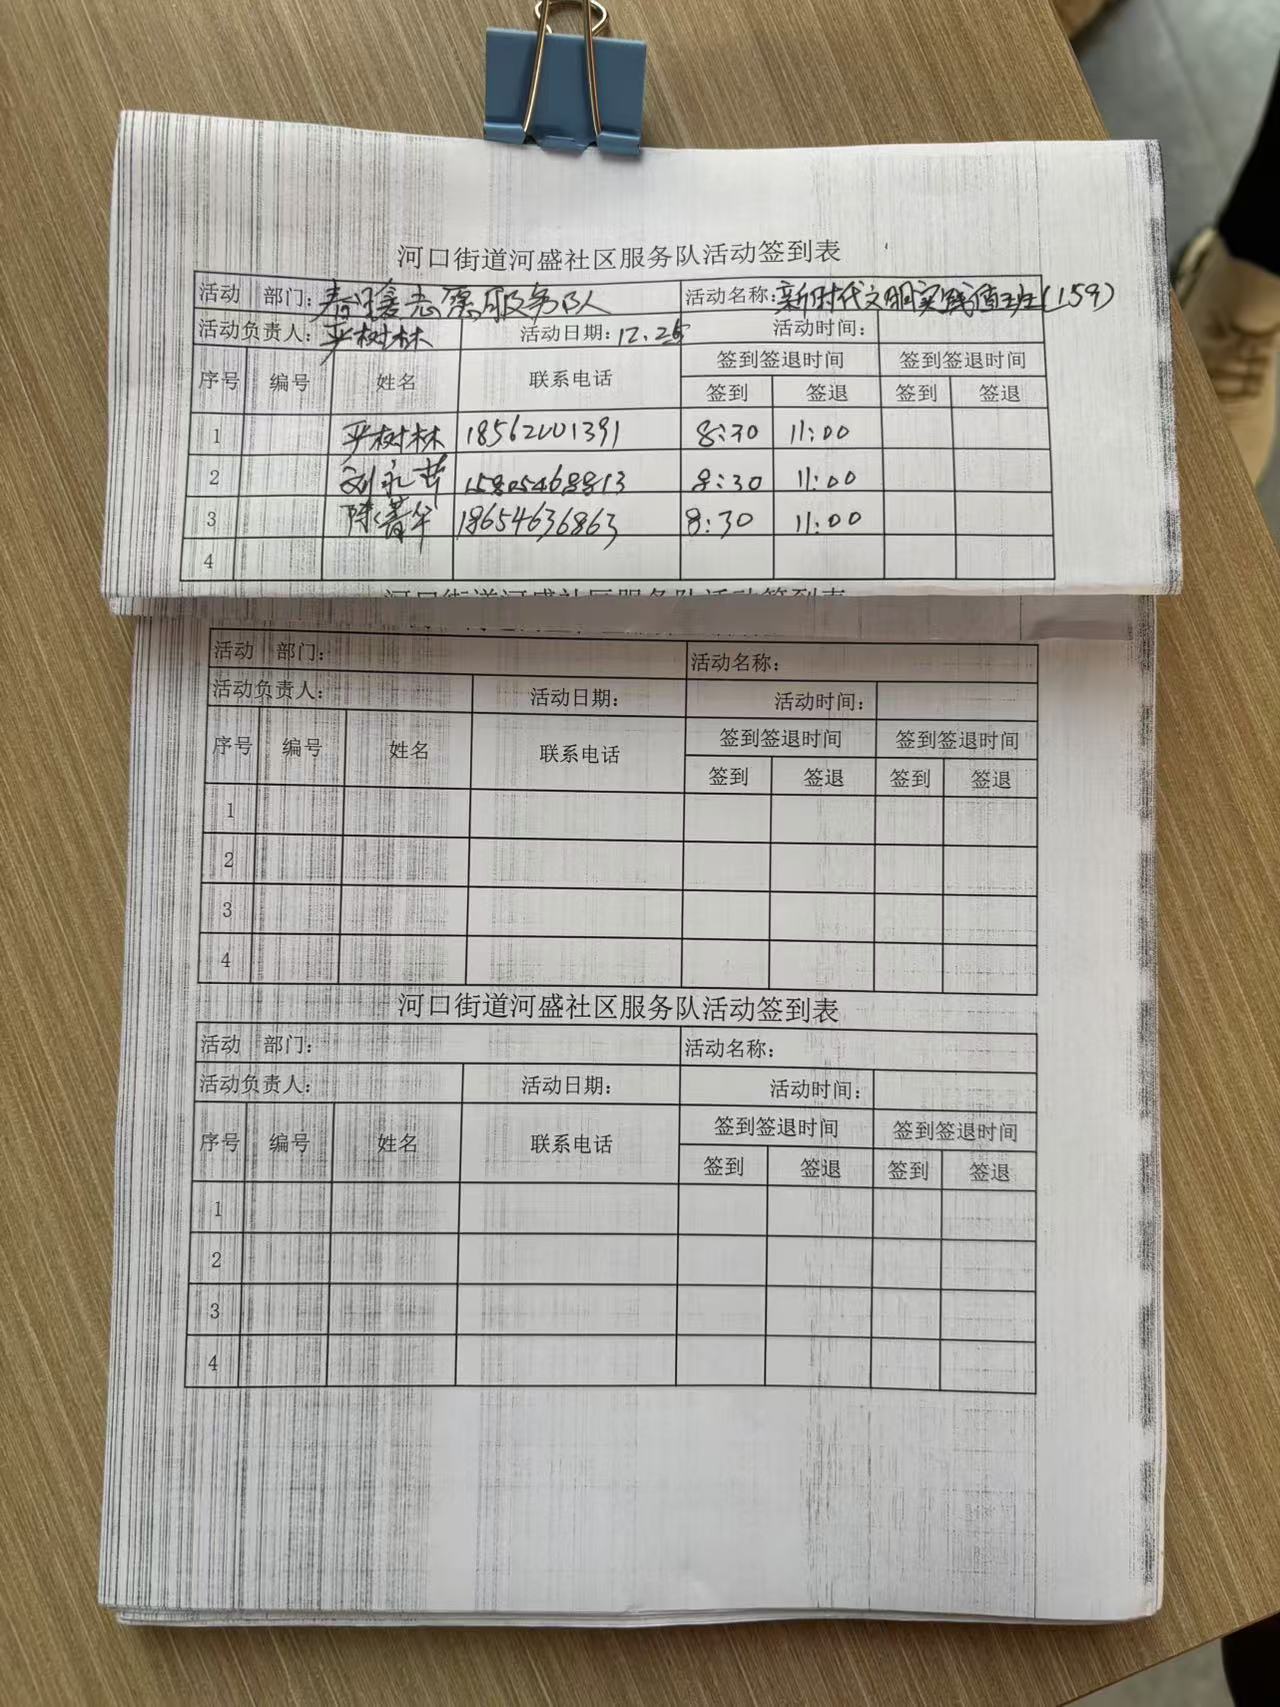 河口街道河盛社区服务队活动签到表
活动 部门:春暖志愿服务队 活动名称:新时代文明实践值班(159)
活动负责人:严树林 活动日期:12.25 活动时间:
序号 编号 姓名 联系电话 签到签退时间 签到签退时间
签到 签退 签到 签退
1 严树林 18562001391 8:30 11:00
2 刘永 15805468813 8:30 11:00
3 陈菁华 18654636863 8:30 11:00
4
河口街道河盛社区服务队活动签到表
活动 部门: 活动名称:
活动负责人: 活动日期: 活动时间:
序号 编号 姓名 联系电话 签到签退时间 签到签退时间
签到 签退 签到 签退
1
2
3
4
河口街道河盛社区服务队活动签到表
活动 部门: 活动名称:
活动负责人: 活动日期: 活动时间:
序号 编号 姓名 联系电话 签到签退时间 签到签退时间
签到 签退 签到 签退
1
2
3
4